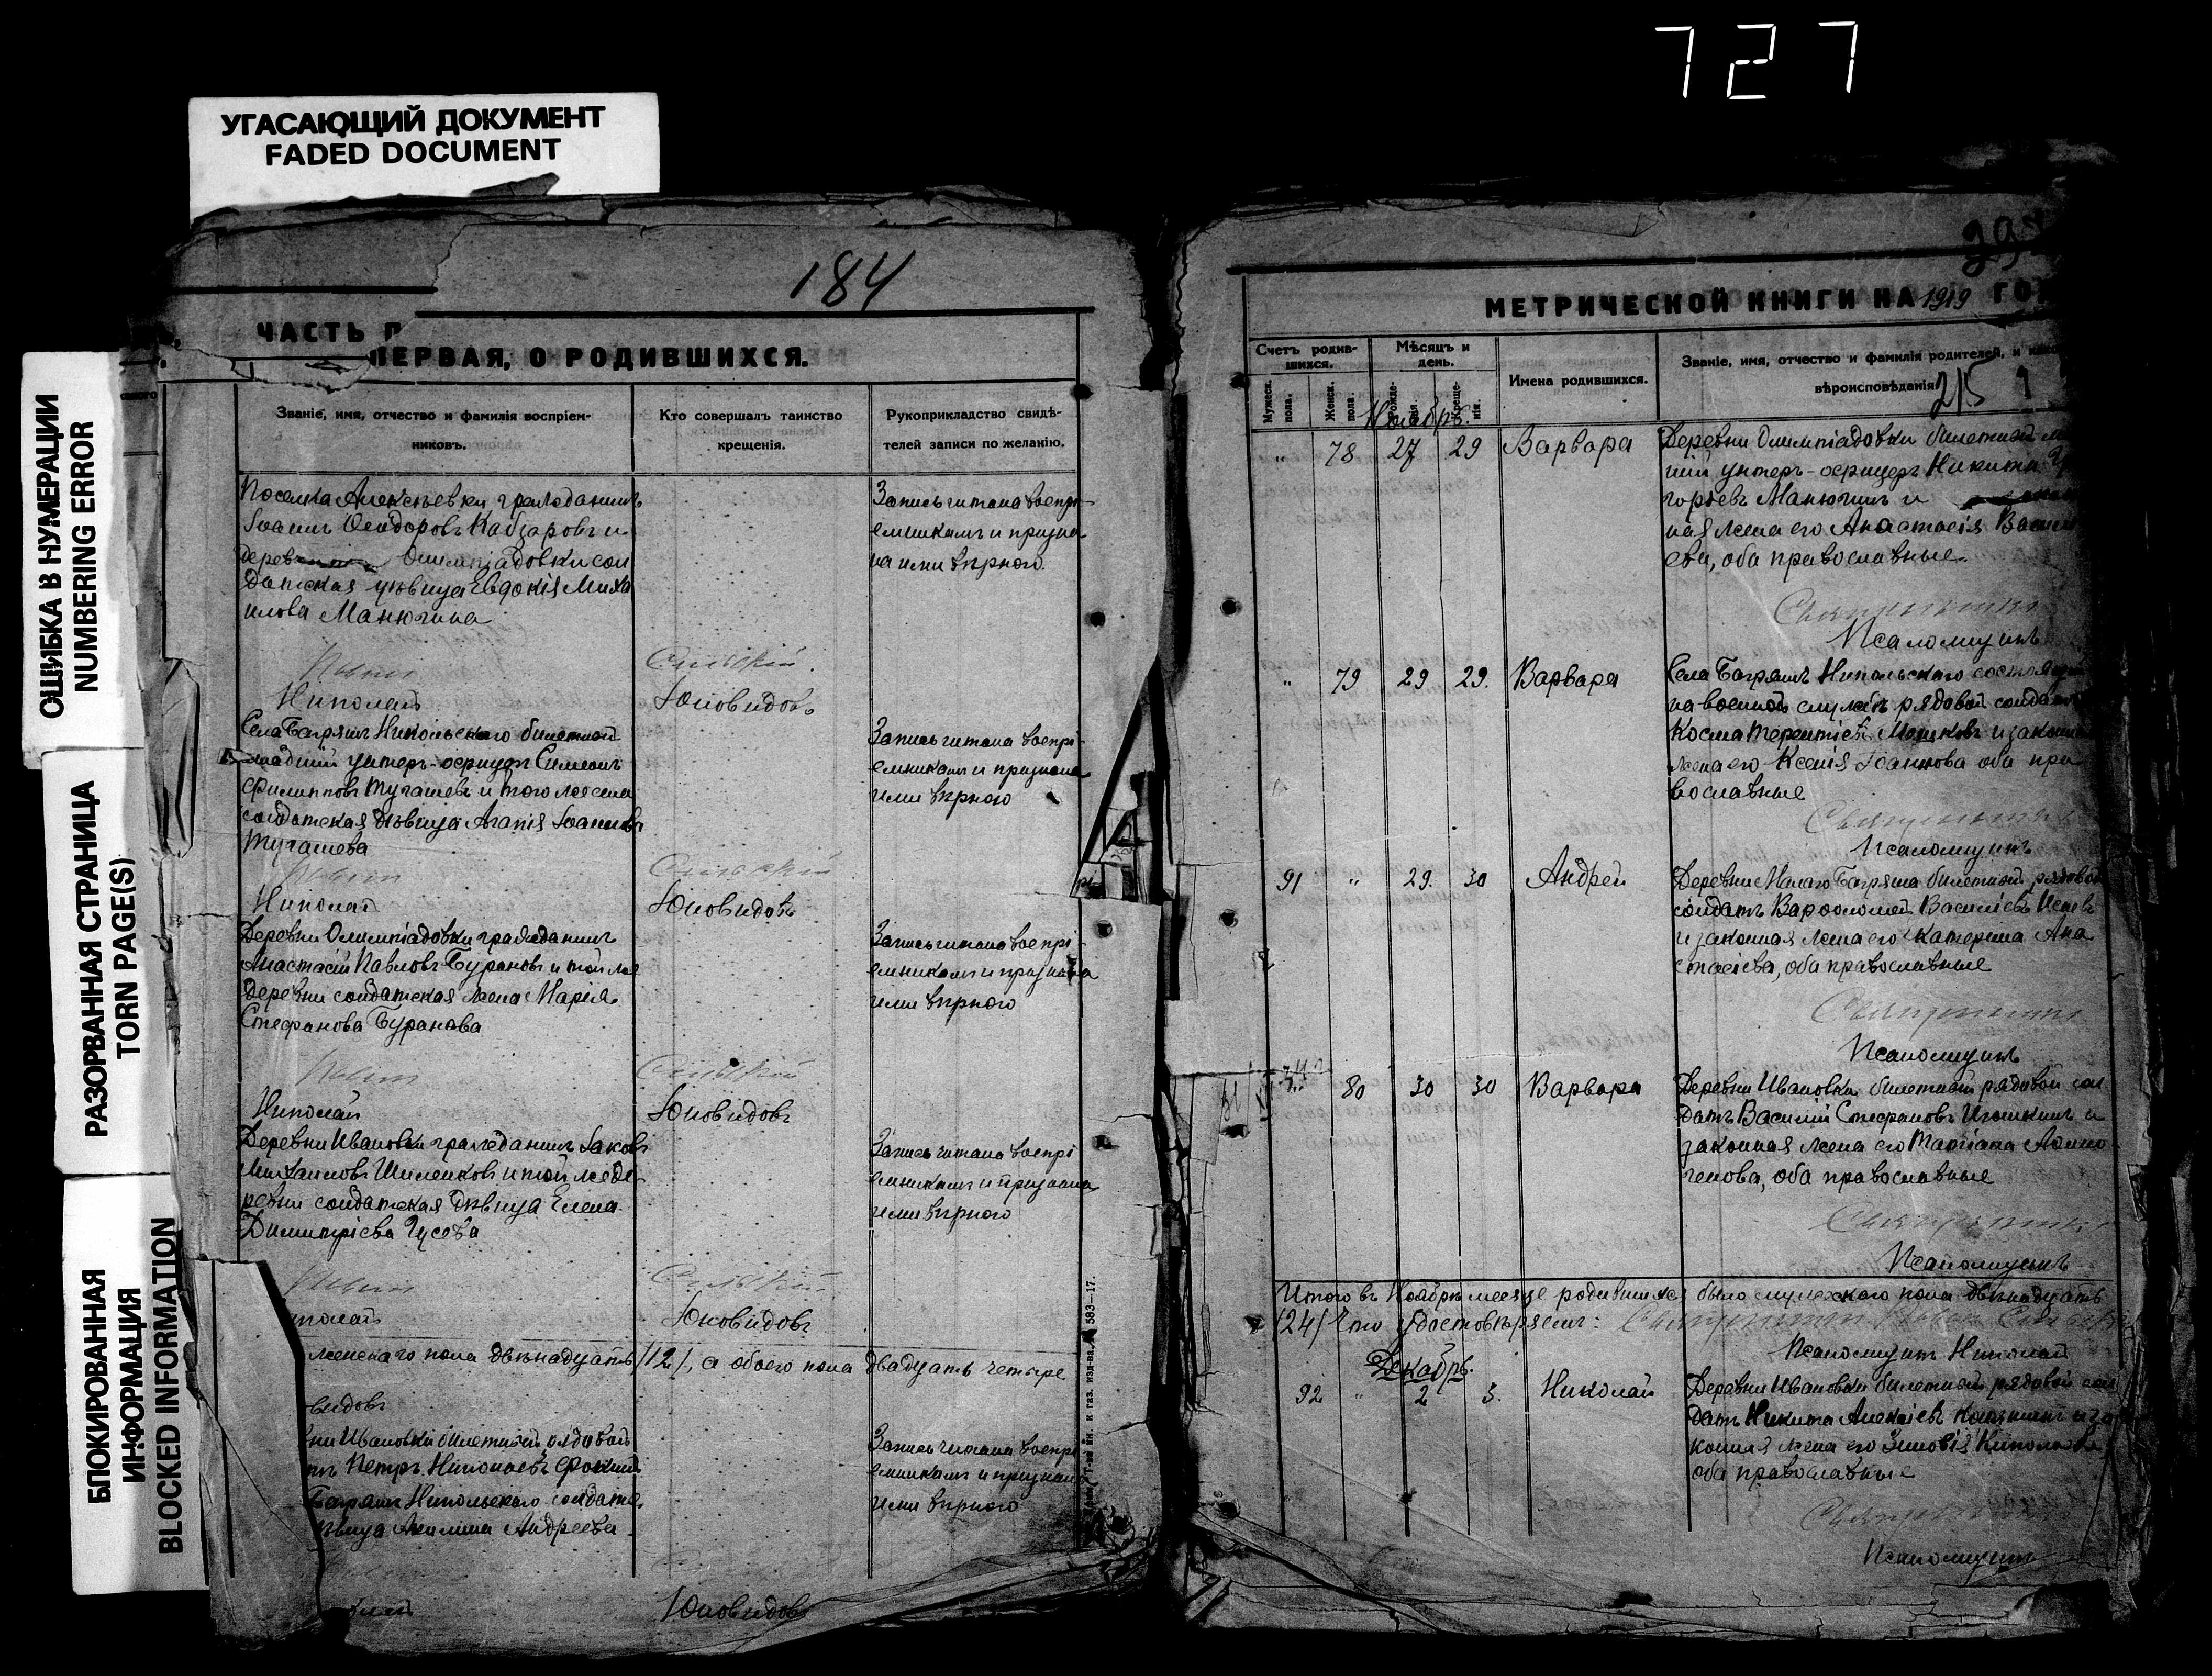 727
УГАСАЮЩИЙ ДОКУМЕНТ
FADED DOCUMENT
ОШИБКА В НУМЕРАЦИИ
NUMBERING ERROR
РАЗОРВАННАЯ СТРАНИЦА
TORN PAGE(S)
БЛОКИРОВАННАЯ
ИНФОРМАЦИЯ
BLOCKED INFORMATION
184
ЧАСТЬ П
ПЕРВАЯ, О РОДИВШИХСЯ.
Званіе, имя, отчество и фамилія воспріем-
никовъ.
Кто совершалъ таинство
крещенія.
Рукоприкладство свидѣ-
телей записи по желанію.
Поселка Алексѣевки гражданинъ
Іоаннъ Ѳеодоровъ и
Олимпіадовки сол
датская дѣвица Евдокія Миха
илова Манюгина
Запись читана воспрі-
емникамъ и призна
на ими вѣрною
Николай
Юновидовъ
Села Багряшъ Никольскаго билетный
младшій унтеръ-офицеръ Симеонъ
Филипповъ Тугашевъ и того же села
солдатская дѣвица Агапія Іоаннова
Тугашева
Запись читана воспрі-
емникамъ и признана
ими вѣрною
Николай
Юновидовъ
Деревни Олимпіадовки гражданинъ
Анастасій Павловъ Бурановъ и той же
деревни солдатская жена Марія
Стефанова Буранова
Запись читана воспрі-
емникамъ и признана
ими вѣрною
Николай
Юновидовъ
Деревни Ивановки гражданинъ Іаковъ
Михаиловъ Шиленковъ и той же де-
ревни солдатская дѣвица Елена
Димитріева Гусева
Запись читана воспрі
емникамъ и признана
ими вѣрною
николай
Юновидовъ
женскаго пола двѣнадцать /12/, а обоего пола двадцать четыре
овидовъ
ни Ивановки билетный рядовой
тъ Петръ Николаевъ Фокинъ
Багряшъ Никольскаго солдатс
ѣвица Акилина Андреева
Запись читана воспрі
емникамъ и признана
ими вѣрною
Юновидовъ
изд-ва 583—17.
МЕТРИЧЕСКОЙ КНИГИ НА 1919 ГО
Счетъ родив-
шихся.
Мѣсяцъ и
день.
Имена родившихся.
Званіе, имя, отчество и фамилія родителей, и како
вѣроисповѣданія
215
Мужеск. пола.
Женск. пола.
Рожде-
нія.
Креще-
нія.
Ноябрь.
„ 78 27 29 Варвара
Деревни Олимпіадовки билетный
шій унтеръ-офицеръ Никита
горьевъ Манюгинъ и
ная жена его Анастасія Васил
ева, оба православные.
Священникъ
Псаломщикъ
„ 79 29 29. Варвара
Села Багряшъ Никольскаго состоящій
на военной службѣ рядовой солдатъ
Косма Терентіевъ и законная
жена его Ксенія Іоаннова оба пра
вославные
Священникъ
Псаломщикъ
91 „ 29. 30 Андрей
Деревни Малаго Багряша билетный рядовой
солдатъ Варфоломей Василіевъ Исаевъ
и законная жена его Катерина Ана
стасіева, оба православные
Священникъ
Псаломщикъ
80 30 30 Варвара
Деревни Ивановки билетный рядовой сол
датъ Василій Стефановъ Игошкинъ и
законная жена его Татіана Аѳино
генова, оба православные
Священникъ
Псаломщикъ
Итого въ Ноябрѣ мѣсяце родившихся было мужескаго пола двѣнадцать
/24/ Что удостовѣряемъ: Священникъ
Псаломщикъ Николай
Декабрь.
92 „ 2 3. Николай
Деревни Ивановки билетный рядовой сол
датъ Никита Алексіевъ и за
конная жена его Зиновія Николаева
оба православные
Священникъ
Псаломщикъ